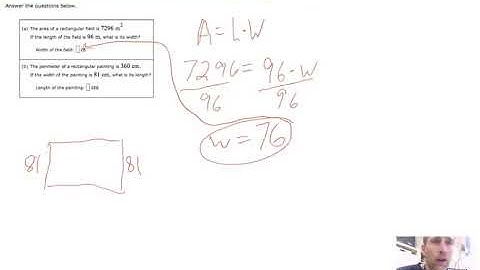 Answer the questions below.
(a) The area of a rectangular field is 7296 m².
If the length of the field is 96 m, what is its width?
Width of the field: m
(b) The perimeter of a rectangular painting is 360 cm.
If the width of the painting is 81 cm, what is its length?
Length of the painting: cm
A = L·W
7296 = 96·W
96 96
W = 76
81 81